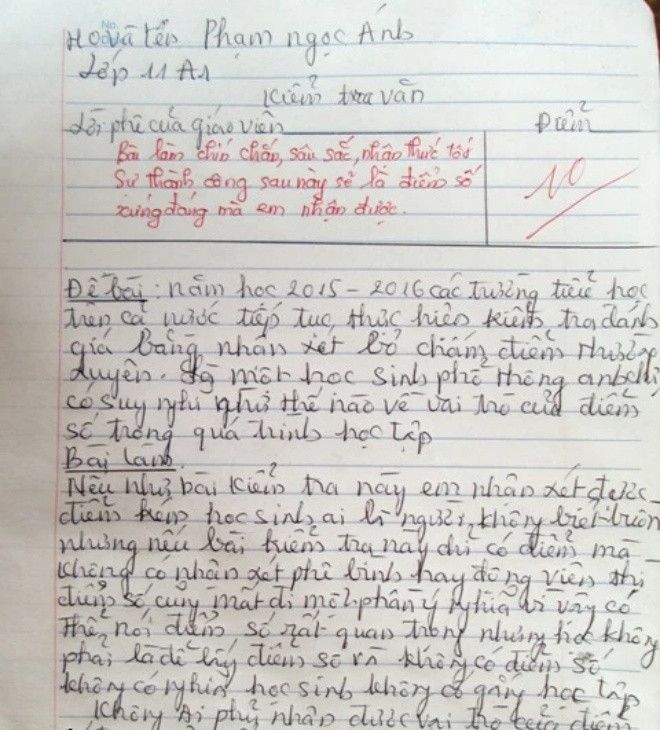 Họ và tên Phạm ngọc Ánh
Lớp 11 A1
Kiểm tra văn
Lời phê của giáo viên Điểm
Bài làm chín chắn, sâu sắc, nhận thức tốt
Sự thành công sau này sẽ là điểm số
xứng đáng mà em nhận được.
10
Đề bài: năm học 2015 - 2016 các trường tiểu học
trên cả nước tiếp tục thực hiện kiểm tra đánh
giá bằng nhận xét bỏ chấm điểm thường
xuyên. Là một học sinh phổ thông anh chị
có suy nghĩ như thế nào về vai trò của điểm
số trong quá trình học tập
Bài làm
Nếu như bài kiểm tra này em nhận xét được
điểm kém học sinh ai là người không biết buồn
nhưng nếu bài kiểm tra này chỉ có điểm mà
không có nhận xét phê bình hay động viên thì
điểm số cũng mất đi một phần ý nghĩa vì vậy có
thể nói điểm số rất quan trọng nhưng học không
phải là để lấy điểm số và không có điểm số
không có nghĩa học sinh không cố gắng học tập
Không Ai phủ nhận được vai trò của điểm